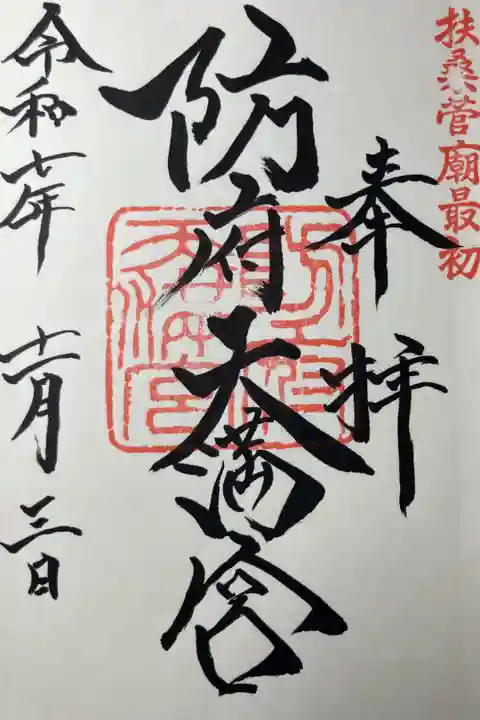 扶桑菅廟最初
奉拝
防府天満宮
令和七年 十一月 三日